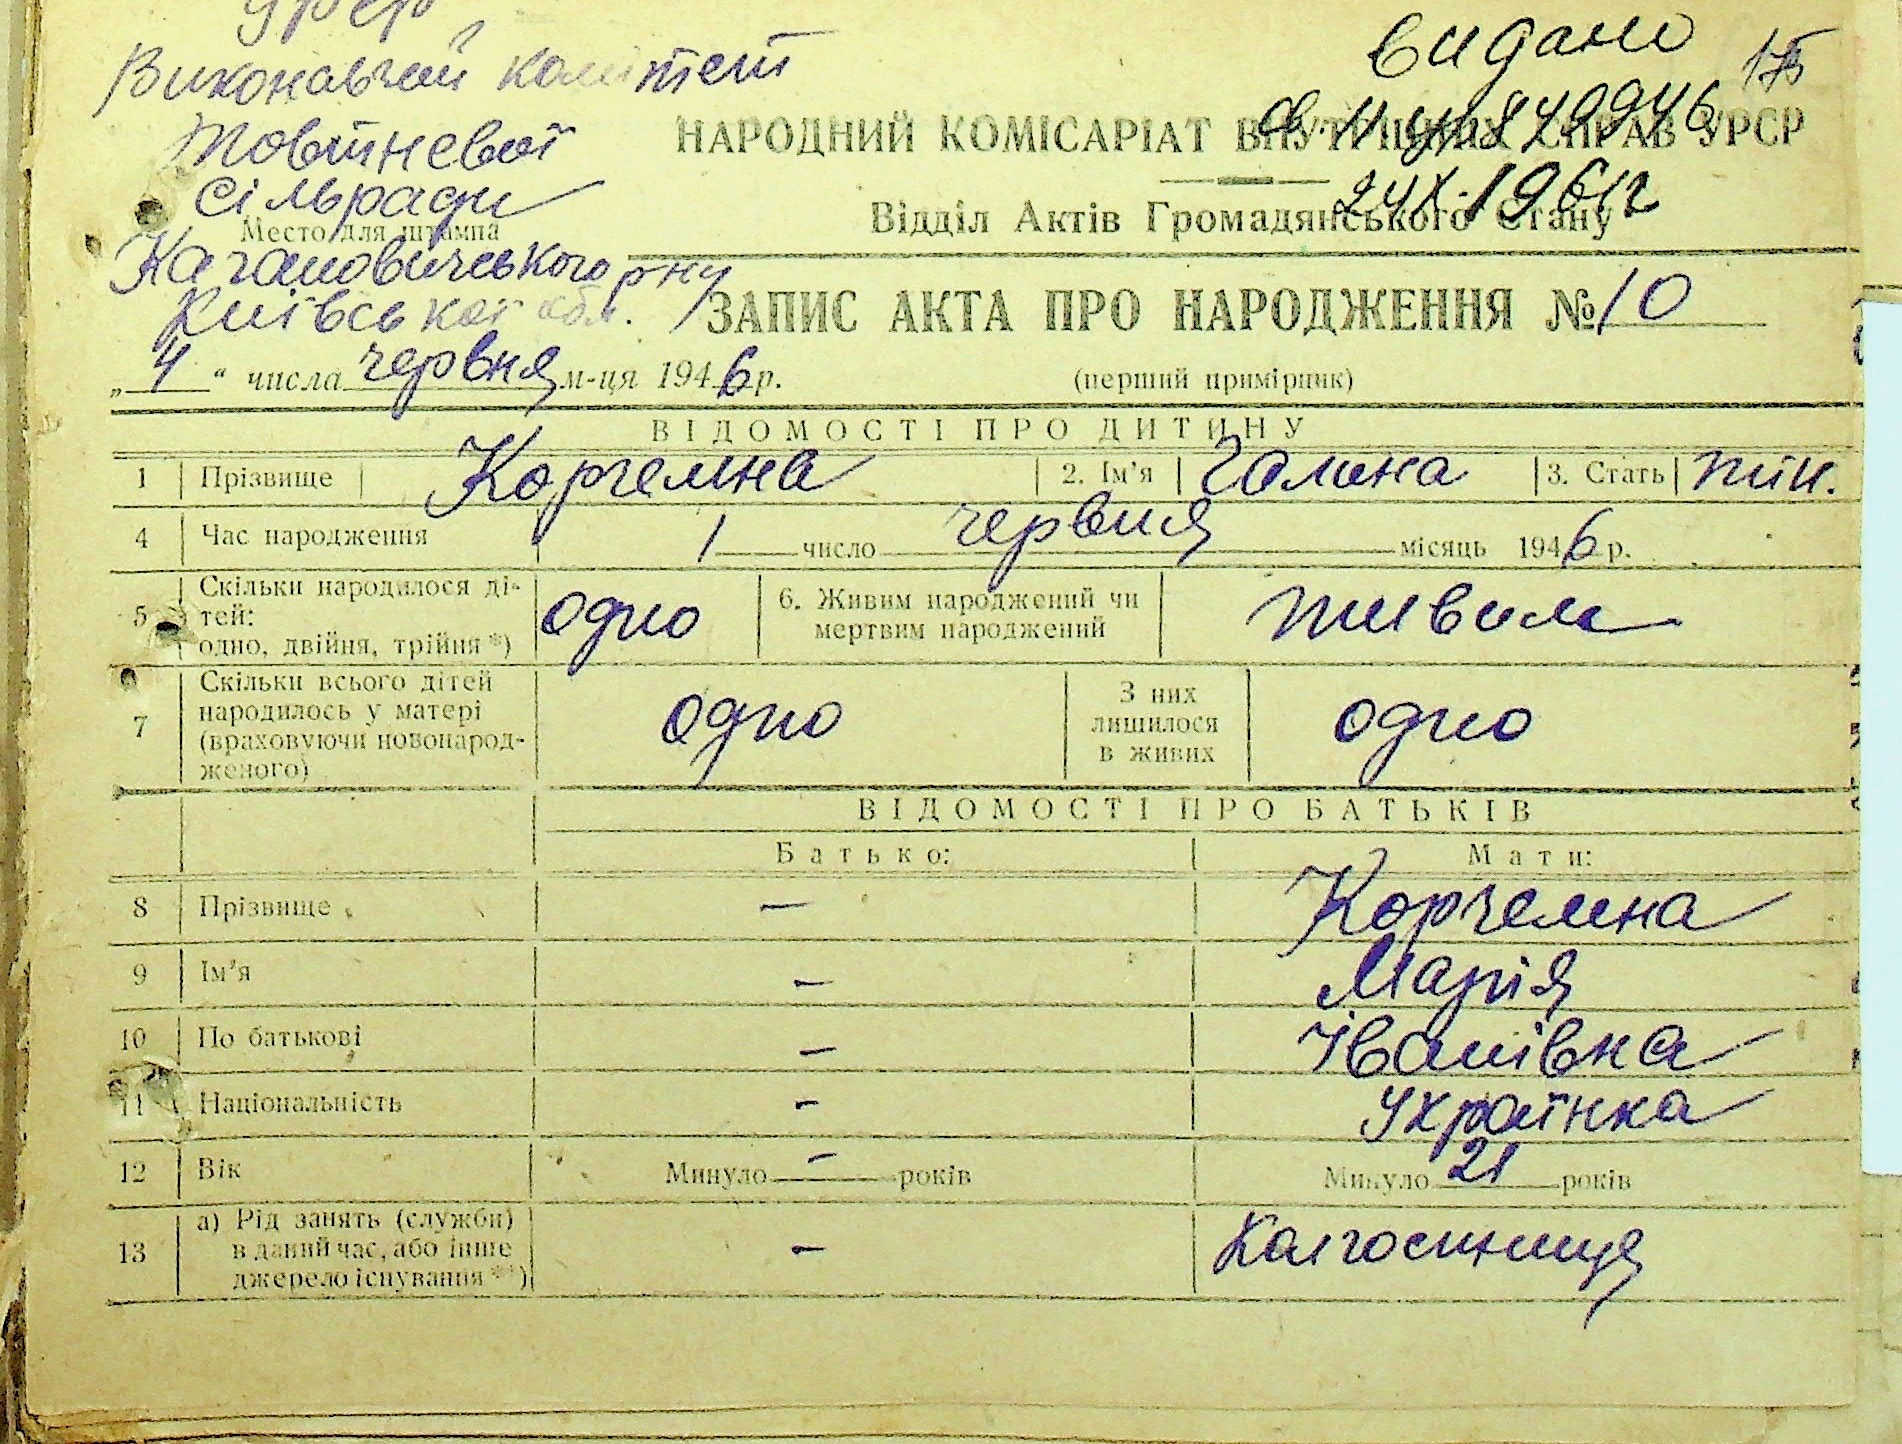 УРСР
Виконавчий комітет
Жовтневої
сільради
Место для штампа
Кагановичського р-ну
Київської обл.
Видано
НАРОДНИЙ КОМІСАРІАТ ВНУТРІШНІХ СПРАВ УРСР
24/X-1961 г
Відділ Актів Громадянського Стану
ЗАПИС АКТА ПРО НАРОДЖЕННЯ № 10
„4“ числа червня м-ця 1946 р. (перший примірник)
ВІДОМОСТІ ПРО ДИТИНУ
1 Прізвище Корчемна 2. Ім'я Галина 3. Стать жін.
4 Час народження 1 число червня місяць 1946 р.
5 Скільки народилося ді-
тей:
одно, двійня, трійня *) одно 6. Живим народжений чи
мертвим народжений живим
7 Скільки всього дітей
народилось у матері
(враховуючи новонарод-
женого) одно З них
лишилося
в живих одно
ВІДОМОСТІ ПРО БАТЬКІВ
Батько: Мати:
8 Прізвище — Корчемна
9 Ім'я — Марія
10 По батькові — Іванівна
11 Національність — Українка
12 Вік Минуло — років Минуло 21 років
13 а) Рід занять (служби)
в даний час, або інше
джерело існування **) — Колгоспниця